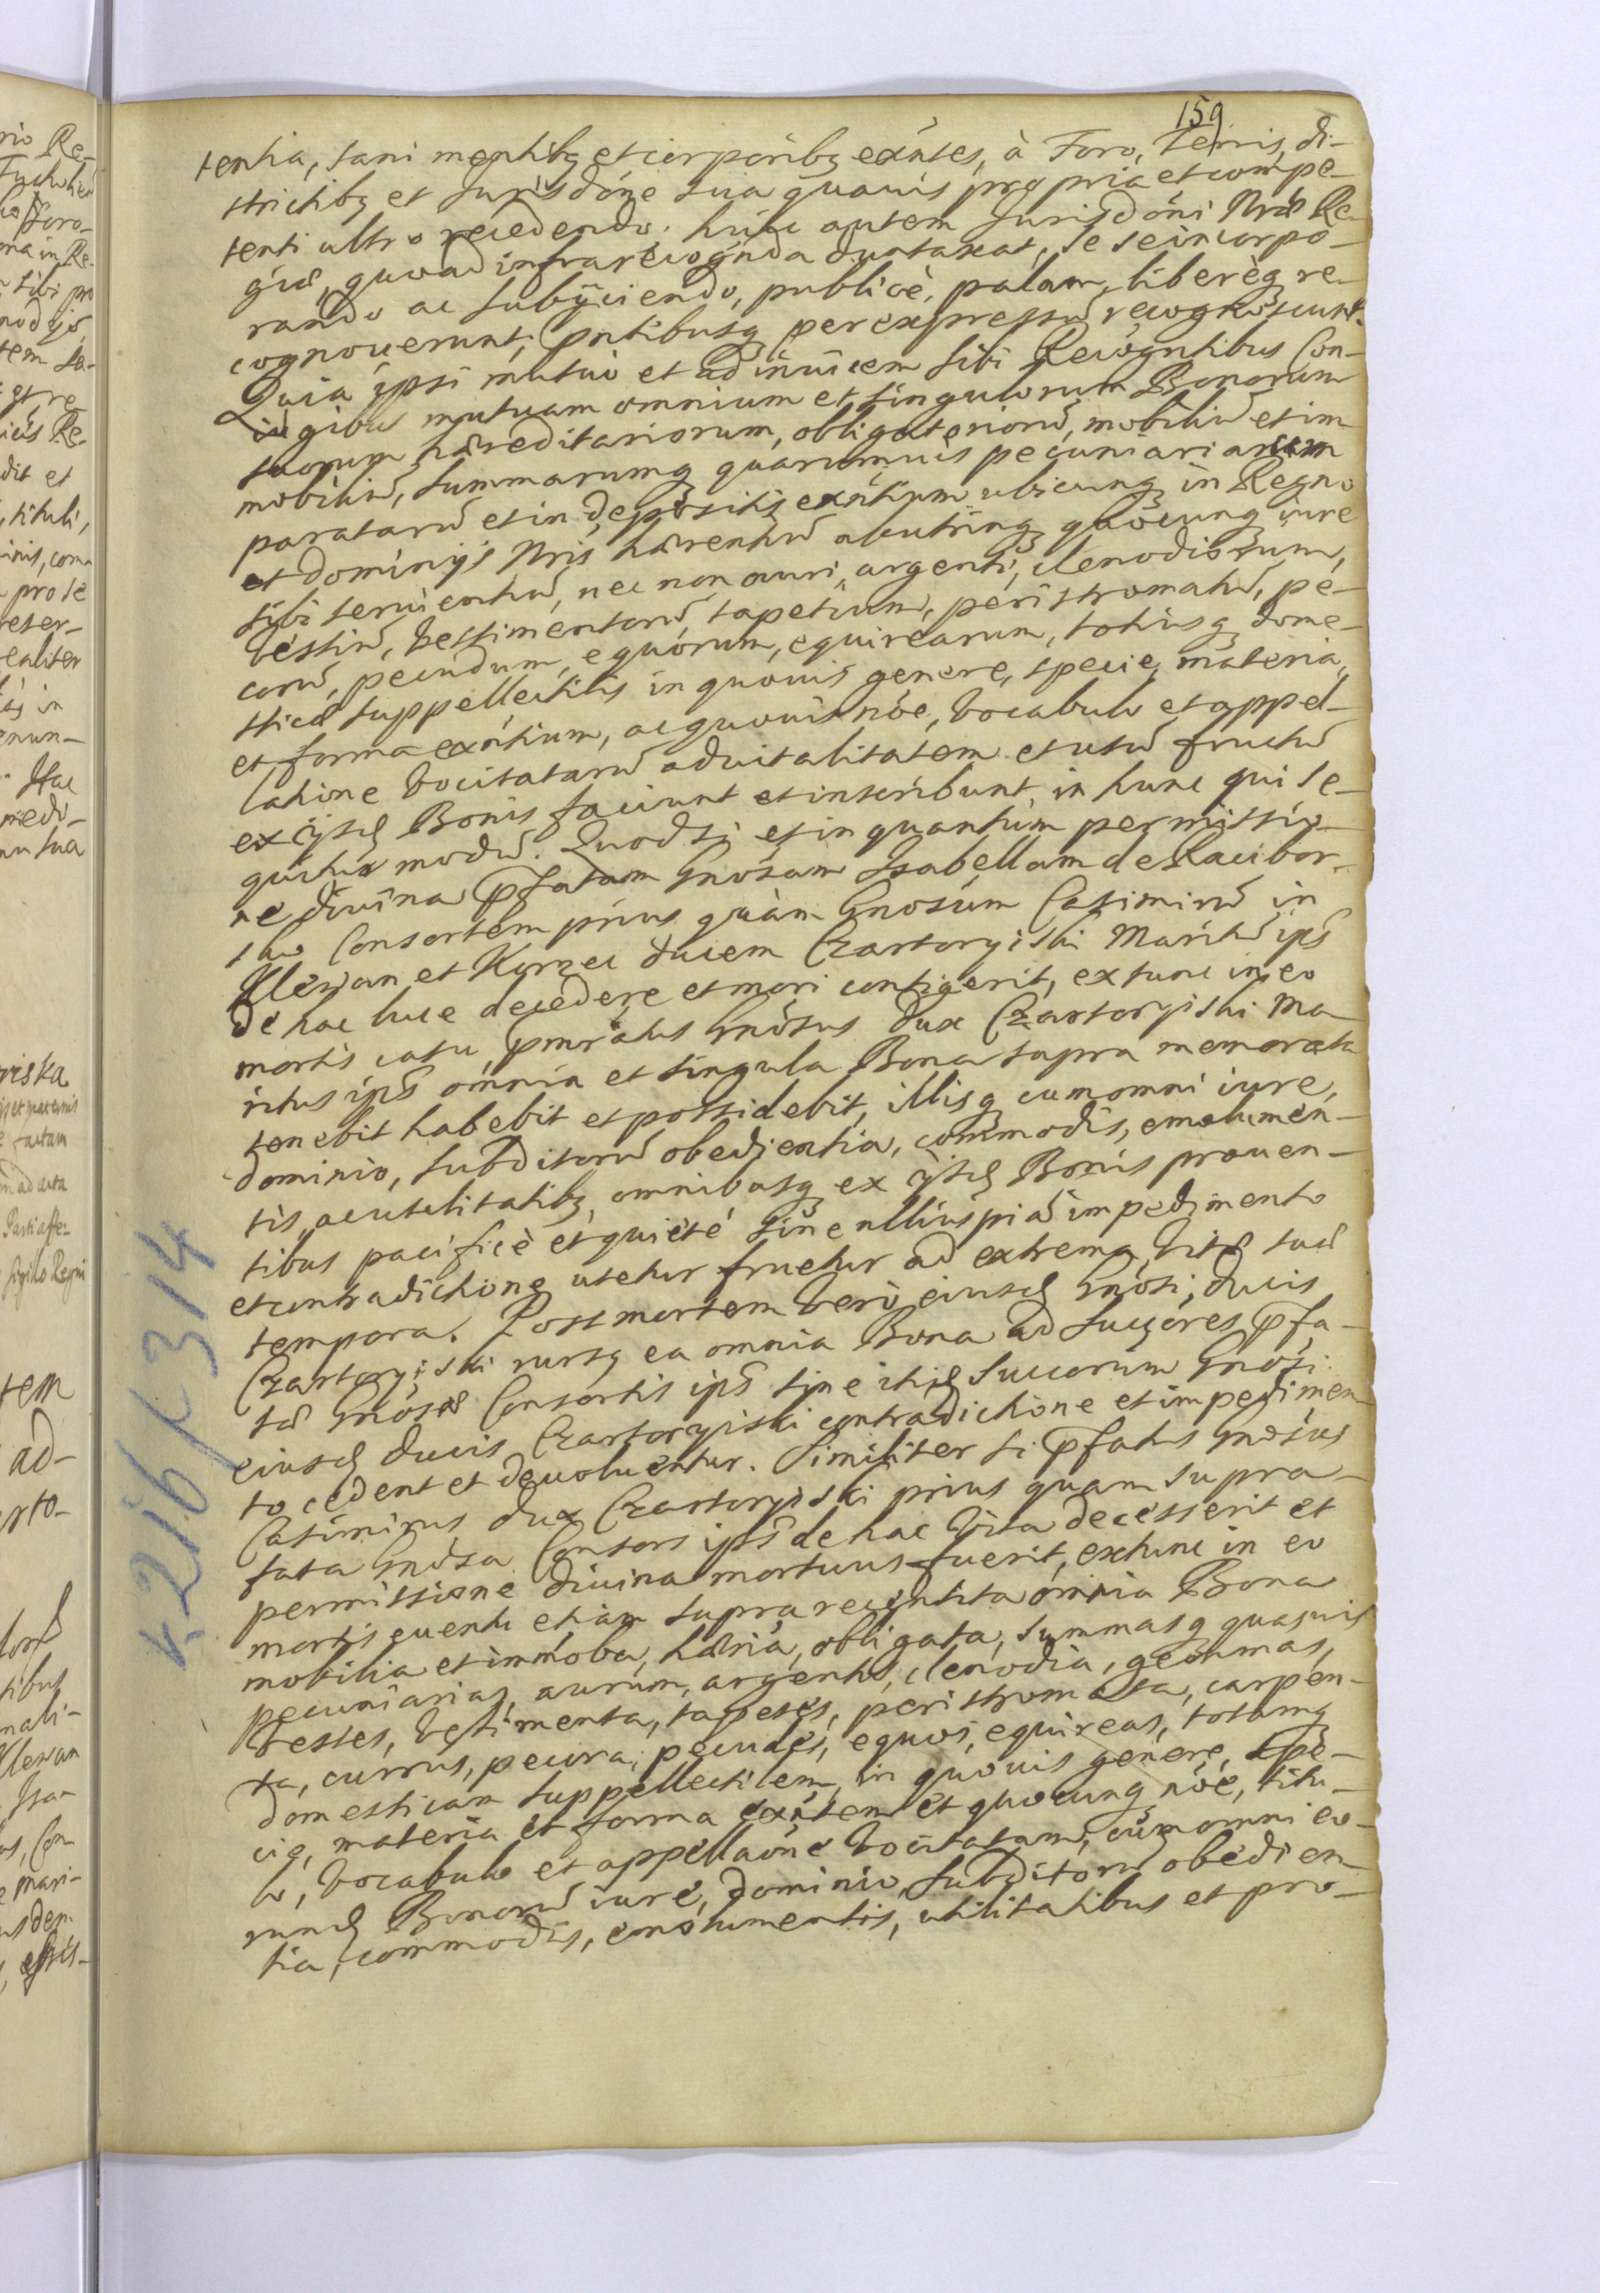 159
tentia, sani mentibq et corporibq exñtes, à Foro, Terris, di-
strictibq et Jurisdóne sua quauis propria et compe-
tenti ultro recedendo. huic autem Jurisdóni Nræ Re-
giæ, quoad infrarecognda duntaxat, se se incorpo-
rando ac subÿciendo, publicè, palam, liberèq re-
cognouerunt, Pntibusq per expressũ recognoscunt.
Quia ipsi mutuo et ad inuicem sibi Recogntibus Con-
iugibus mutuam omnium et singulorum Bonorum
suorum hæreditariorum, obligatoriorũ, mobiliũ et im
mobiliũ, summarumq quarumuis pecuniariarum
paratarũ et in depositis exñtium ubicunq in Regno
et dominÿs Nris hærentiũ ab utrinq quocunq iure
sibi seruientiũ, nec non auri, argenti, clenodiorum,
vestiũ, vestimentorũ, tapetium, peristromatũ, pe-
corũ, pecudum, equorum, equirearum, totiusq dome-
sticæ suppellectilis in quouis genere, specie, materia,
et forma exñtium, ac quouis nóe, vocabulo et appel-
latione vocitatarũ aduitalitatem et usũ fructũ
ex ÿsd Bonis faciunt et inscribunt, in hunc qui se-
quitur modũ. Quod si et in quantum permissio-
ne diuina Pfatam Gnosam Isabellam de Racibor-
sko Consortem prius quàm Gnosum Casimirũ in
Klewan et Korzec ducem Czartoryiski Maritũ ips
de hac luce decedere et mori contigerit, ex tunc in eo
mortis casu, pmoratus Gnosus dux Czartoryiski Ma
ritus ips omnia et singula Bona supra memorata
tenebit habebit et possidebit, illisq cum omni iure,
dominio, subditorũ obedientia, commodis, emolumen-
tis, ac utilitatibq, omnibusq ex ÿsd Bonis prouen-
tibus pacificè et quietè sine ullius piã impedimento
et contradictione utetur fruetur ad extrema vitæ suæ
tempora. Post mortem verò eiusd Gnosi, ducis
Czartoryiski rursq ea omnia Bona ad Succores Pfa-
tæ Gnosæ Consortis ips sine ... Succorum Gnosi
eiusd ducis Czartoryiski contradictione et impedimen
to cedent et deuoluentur. Similiter si Pfatus Gnosus
Casimirus dux Czartoryiski prius quam supra-
fata Gnosa Consors ips de hac vita decesserit et
permissione diuina mortuus fuerit, extunc in eo
mortis euentu etiam supra recogntita omnia Bona
mobilia et immobā, hæria, obligata, summasq quasuis
pecuniarias, aurum, argentũ, clenodia, gemmas,
vestes, vestimenta, tapetes, peristromata, carpen-
ta, currus, pecora, pecudes, equos, equireas, totamq
domesticam suppellectilem, in quouis genere, spe-
cie, materia et forma exñtem et quocunq nóe, titu-
lo, vocabulo et appellaóne vocitatam, cum omni eo-
rund Bonorũ iure, dominio, subditorũ obedien-
tia, commodis, emolumentis, utilitatibus et pro-
k 216 / 314